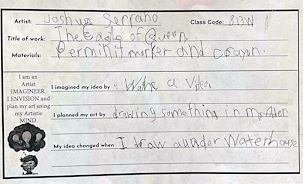 Artist: Joshua Serrano Class Code: 8BW
Title of work: The Eagle of Queen
Materials: Perminit marker and crayon.
I am an
Artist
IMAGINEER.
I ENVISION and
plan my art using
my Artistic
MIND.
I imagined my idea by a
I planned my art by drawing something in my
My idea changed when I draw a under Waterhouse